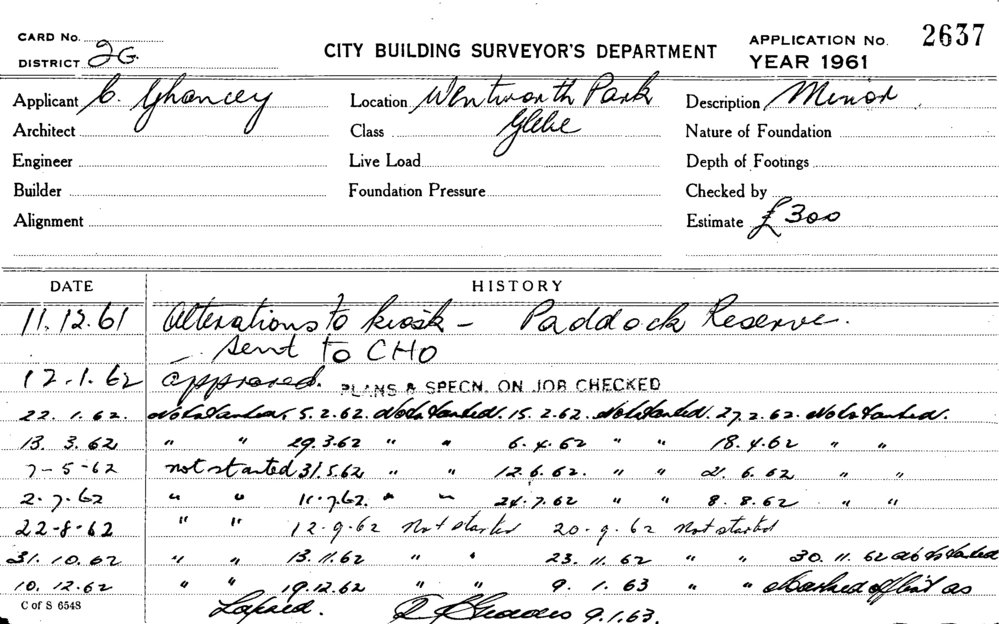 CARD No.
DISTRICT 2G
CITY BUILDING SURVEYOR'S DEPARTMENT
APPLICATION No. 2637
YEAR 1961
Applicant C. Ghancey Location Wentworth Park Description Minor
Architect Class Glebe Nature of Foundation
Engineer Live Load Depth of Footings
Builder Foundation Pressure Checked by
Alignment Estimate £300
DATE HISTORY
11.12.61 Alterations to kiosk – Paddock Reserve.
– Sent to CHO
12.1.62 approved. PLANS & SPECN. ON JOB CHECKED
22.1.62. Not started. 5.2.62. Not started. 15.2.62. Not started. 27.2.62. Not started.
13.3.62 " " 29.3.62 " " 6.4.62 " " 18.4.62 " "
7-5-62 not started 31.5.62 " " 12.6.62. " " 21.6.62 " "
2.7.62 " " 11.7.62. " " 24.7.62 " " 8.8.62 " "
22-8-62 " " 12-9-62 Not started 20-9-62 Not started
31.10.62 " " 13.11.62 " " 23.11.62 " " 30.11.62 not started
10.12.62 " " 19.12.62 " " 9.1.63 " " Marked off list as
C of S 6548 Lapsed. 9.1.63.